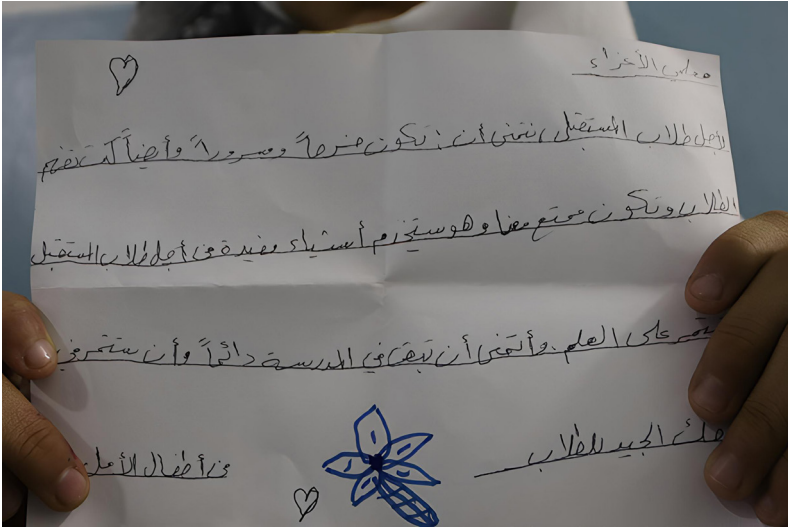 معلمي الأعزاء
لأجل طلاب المستقبل، نتمنى أن: تكون فرحاً ومسروراً وأيضاً كنت تفهم
الطلاب وتكون ممتع معنا وهو ستيخرم أستياء مفيدة من أجل طلاب المستقبل
على العلم. وأتمنى أن تبقى في المدرسة دائماً وأن ستمر في
الجيد للطلاب
من أطفال الأمل